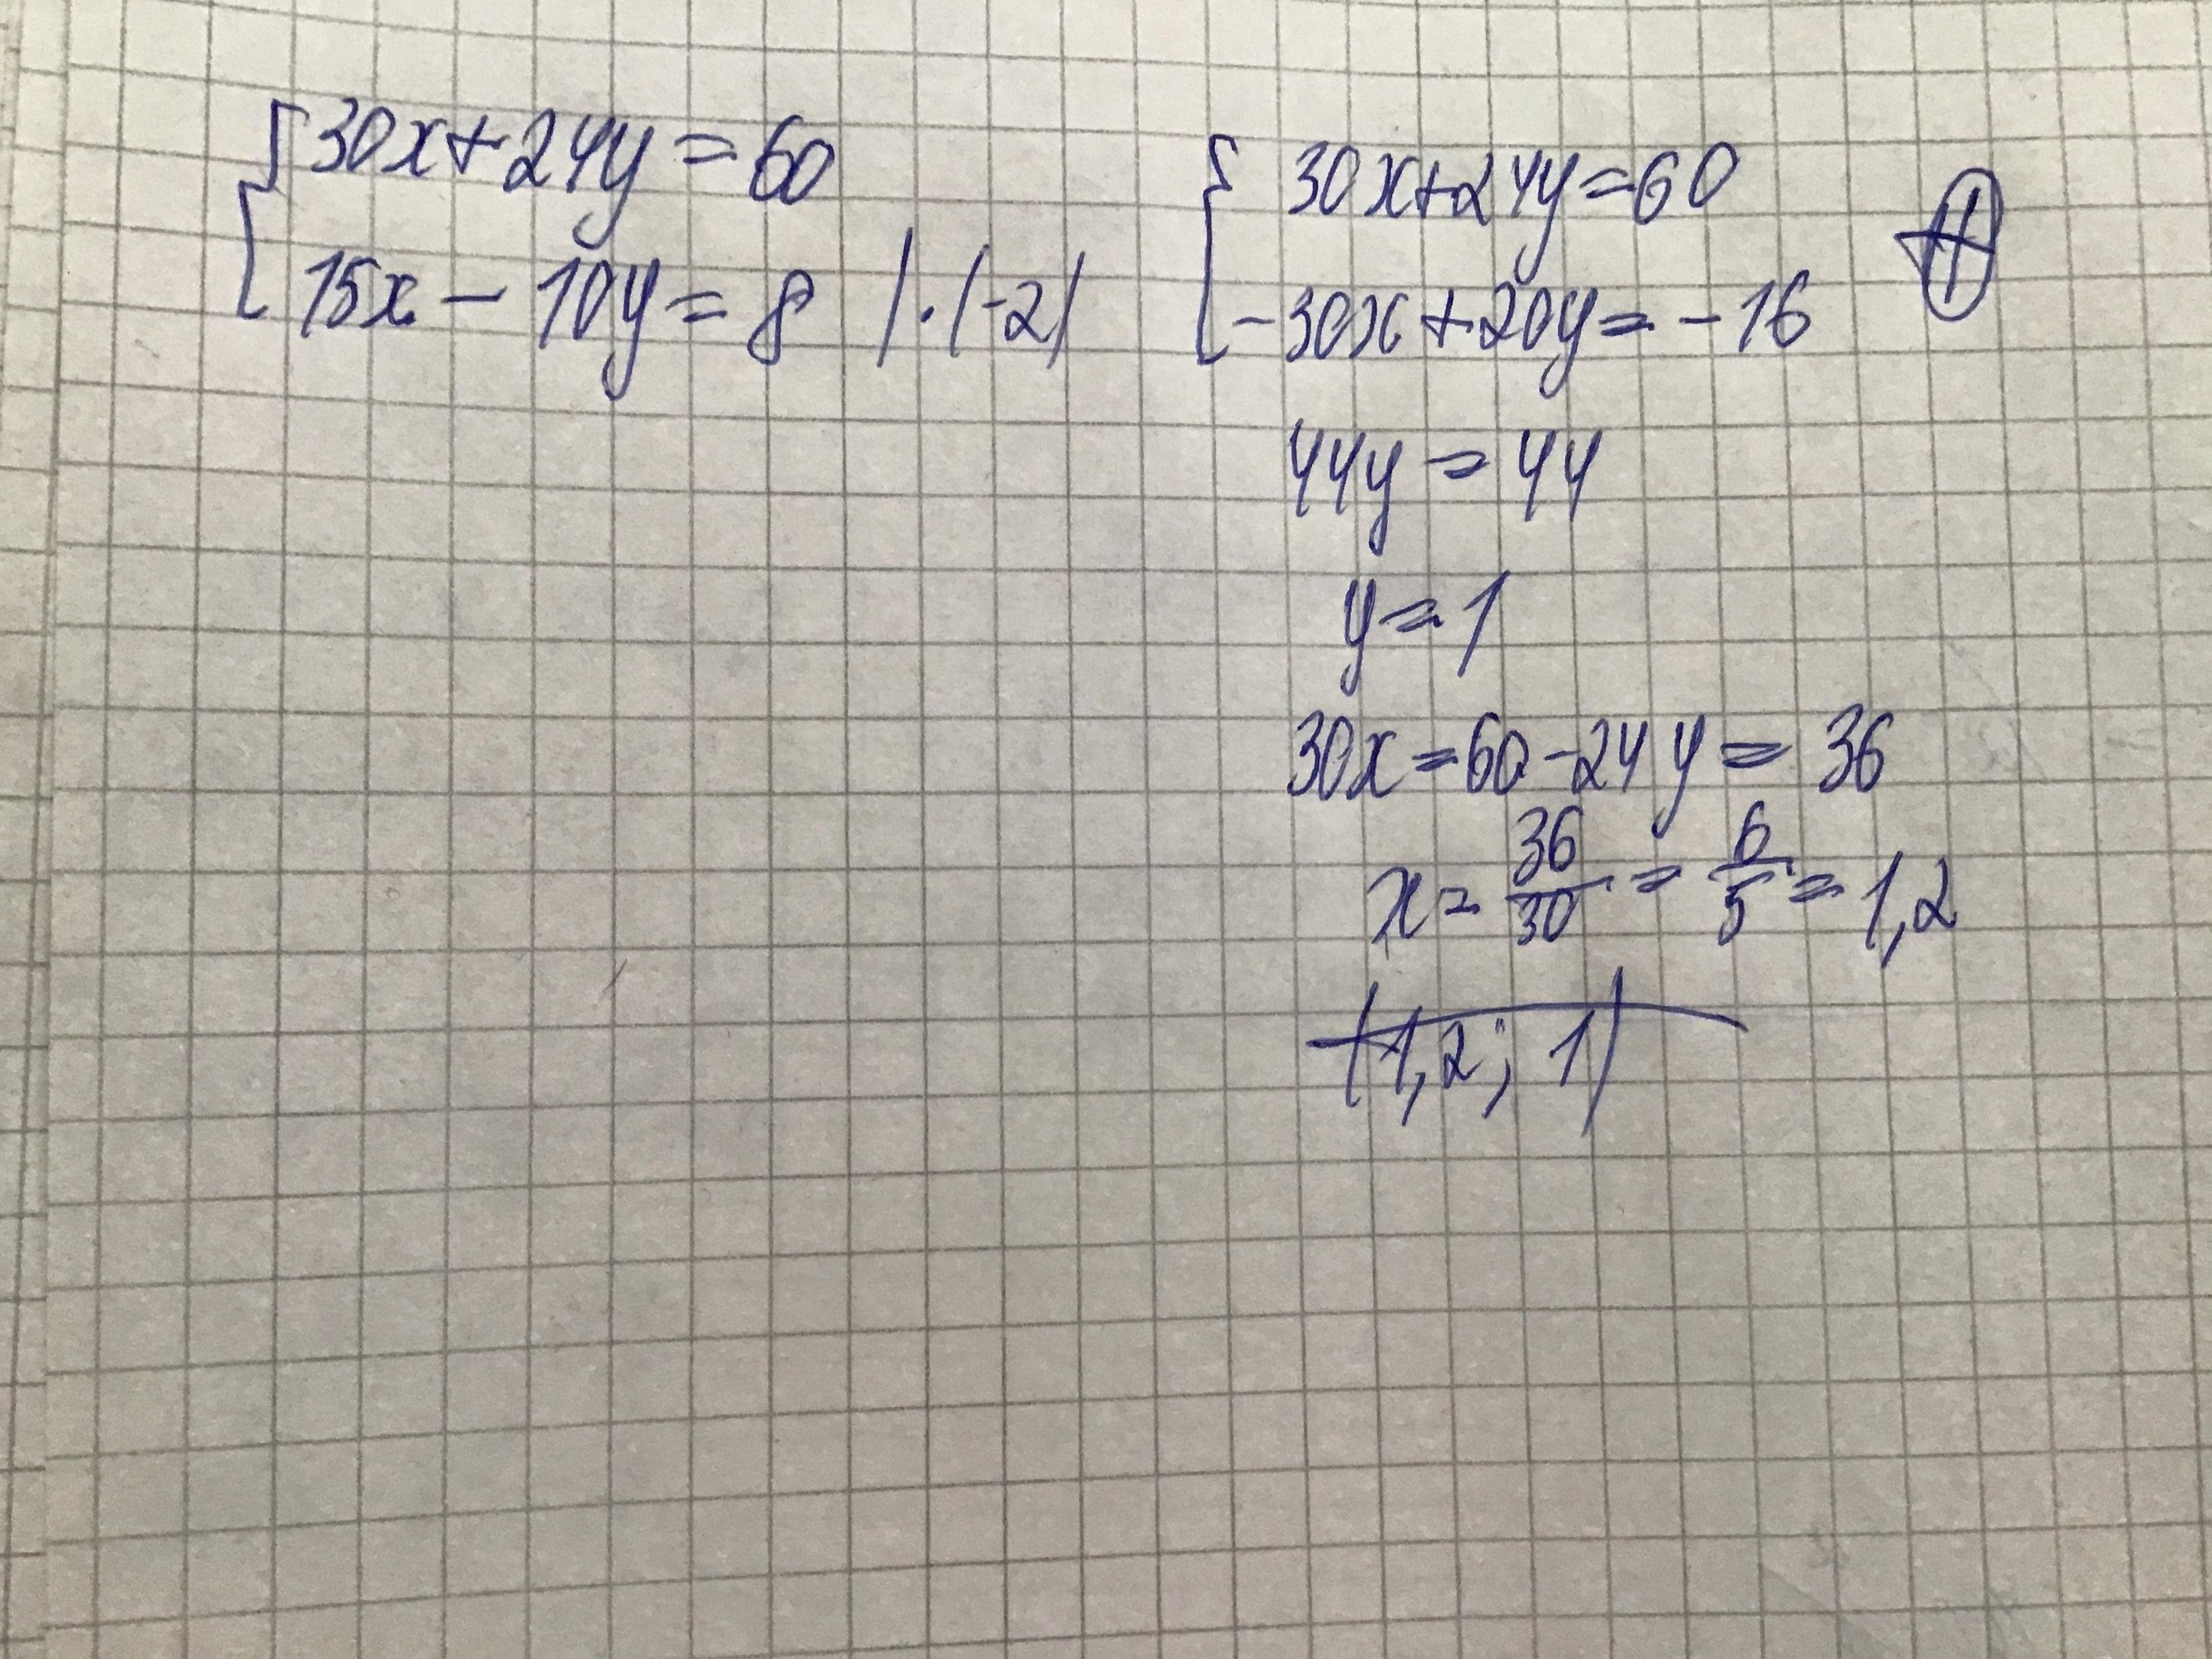 {30x+24y=60
15x-10y=8 |·(-2)
{30x+24y=60
-30x+20y=-16 ⊕
44y=44
y=1
30x=60-24y=36
x=36/30=6/5=1,2
(1,2; 1)